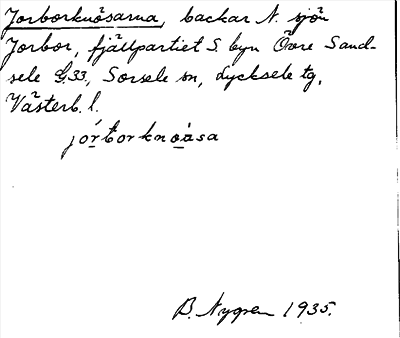 Jorborknösarna, backar N. sjön
Jorbor, fjällpartiet S. byn Övre Sand-
sele G.33, Sorsele sn, Lycksele tg,
Västerb. l.
jórborknoàsa
B. Nygren 1935.